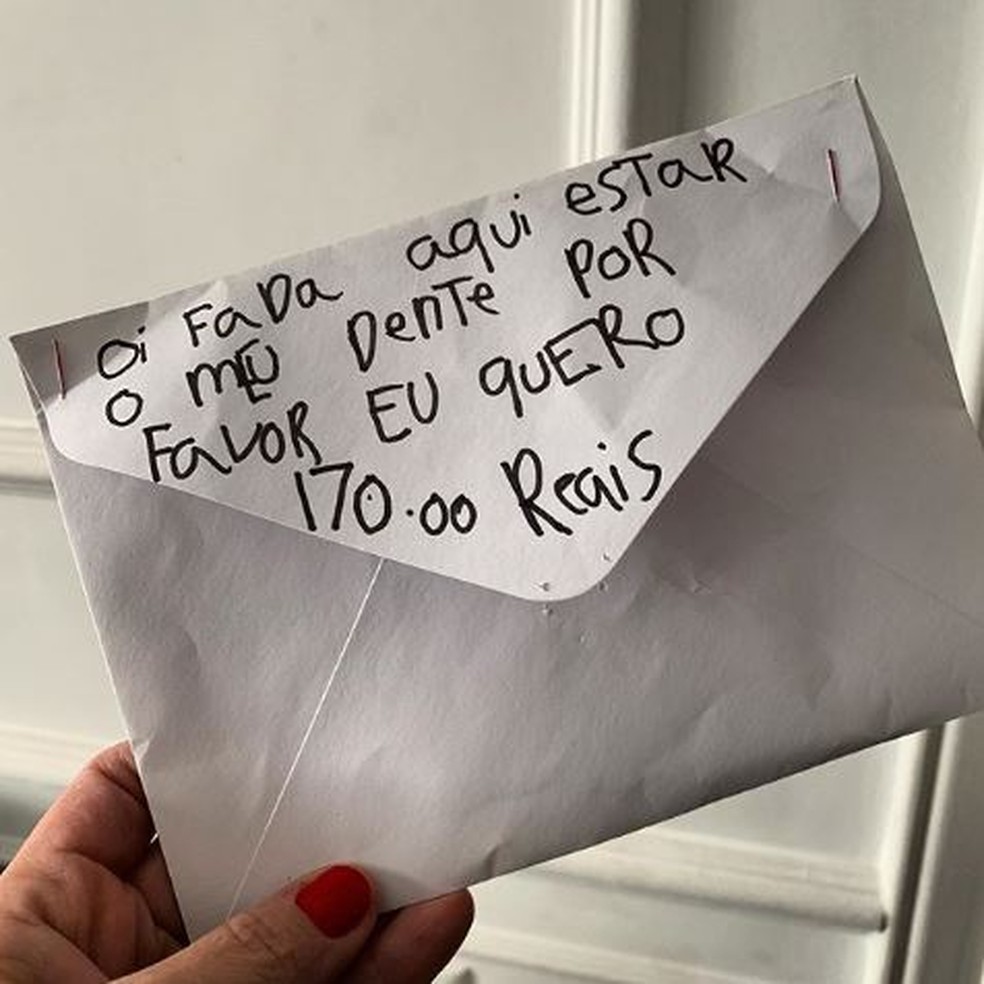 Oi FaDa aqui esTaR
o MEU DenTe POR
FavoR EU qUERO
170.00 Reais